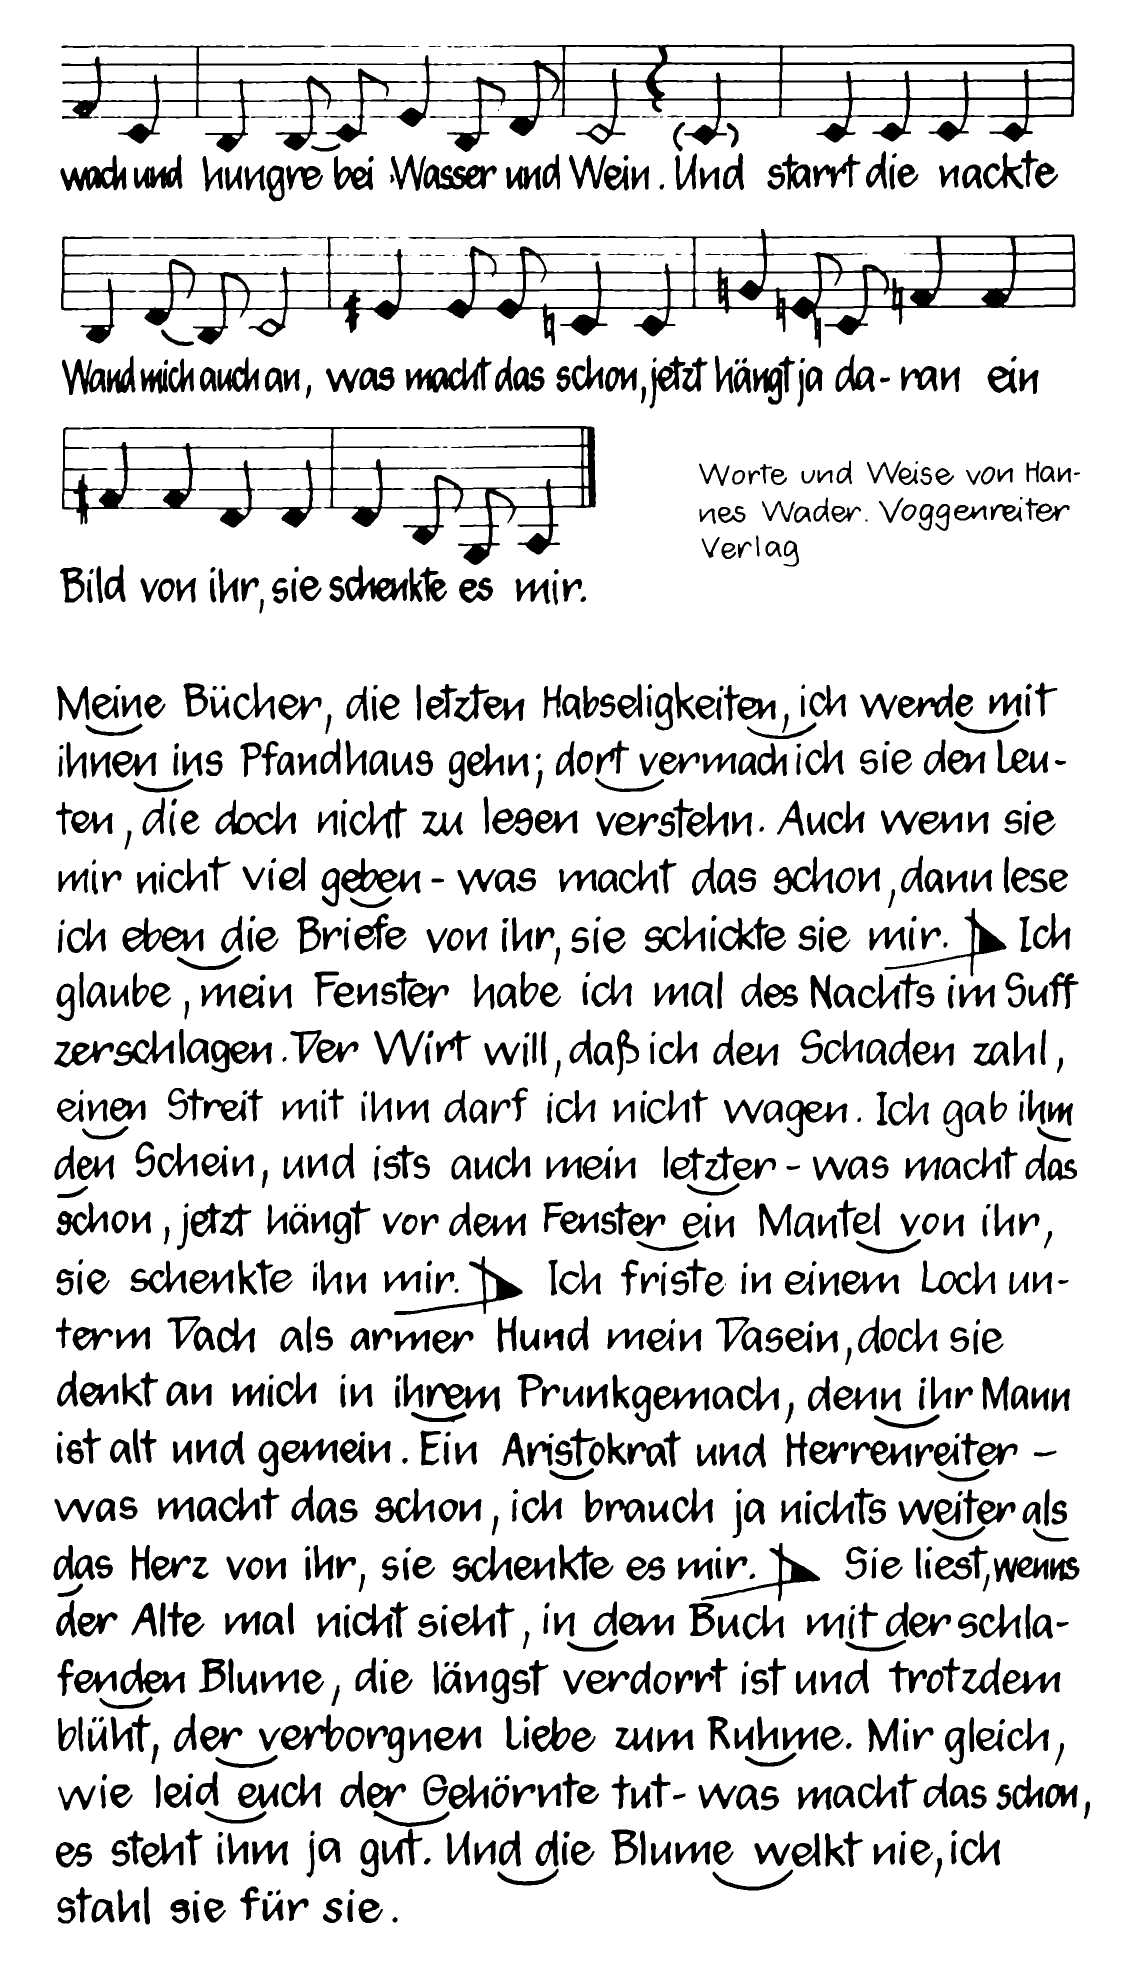 wach und hungre bei Wasser und Wein. Und starrt die nackte
Wand mich auch an, was macht das schon, jetzt hängt ja da-ran ein
Bild von ihr, sie schenkte es mir.
Worte und Weise von Han-
nes Wader. Voggenreiter
Verlag
Meine Bücher, die letzten Habseligkeiten, ich werde mit
ihnen ins Pfandhaus gehn; dort vermach ich sie den Leu-
ten, die doch nicht zu lesen verstehn. Auch wenn sie
mir nicht viel geben - was macht das schon, dann lese
ich eben die Briefe von ihr, sie schickte sie mir. Ich
glaube, mein Fenster habe ich mal des Nachts im Suff
zerschlagen. Der Wirt will, daß ich den Schaden zahl,
einen Streit mit ihm darf ich nicht wagen. Ich gab ihm
den Schein, und ists auch mein letzter - was macht das
schon, jetzt hängt vor dem Fenster ein Mantel von ihr,
sie schenkte ihn mir. Ich friste in einem Loch un-
term Dach als armer Hund mein Dasein, doch sie
denkt an mich in ihrem Prunkgemach, denn ihr Mann
ist alt und gemein. Ein Aristokrat und Herrenreiter -
was macht das schon, ich brauch ja nichts weiter als
das Herz von ihr, sie schenkte es mir. Sie liest, wenns
der Alte mal nicht sieht, in dem Buch mit der schla-
fenden Blume, die längst verdorrt ist und trotzdem
blüht, der verborgnen Liebe zum Ruhme. Mir gleich,
wie leid euch der Gehörnte tut - was macht das schon,
es steht ihm ja gut. Und die Blume welkt nie, ich
stahl sie für sie.